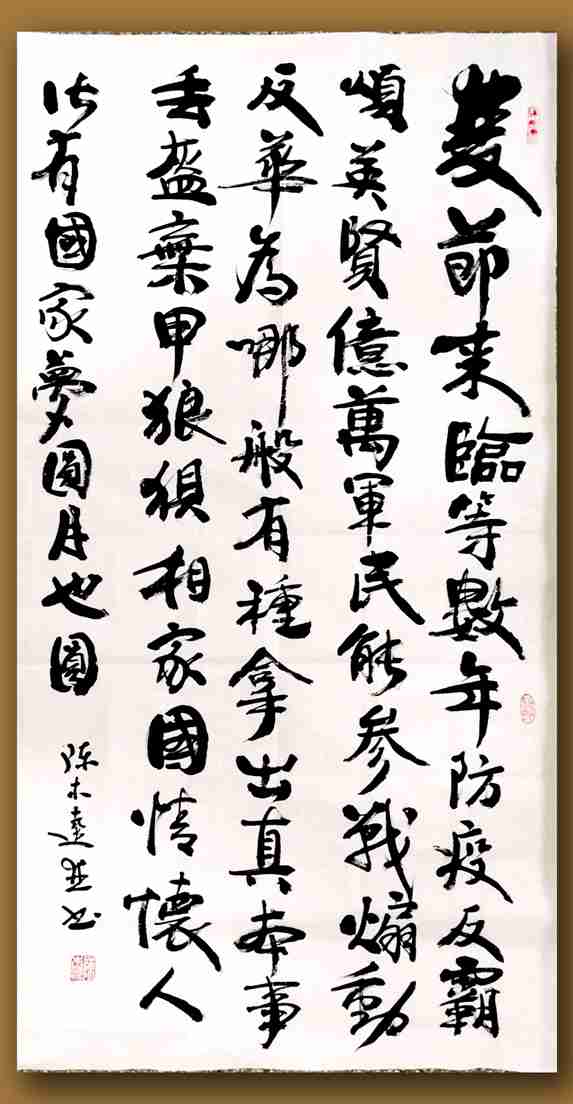 節来臨等數年防疫反霸
頌英賢億萬軍民能參戰煽動
反華為哪般有種拿出真本事
丟盔棄甲狼狽相家國情懷人
皆有國家夢圓月也圓
陳木達並書